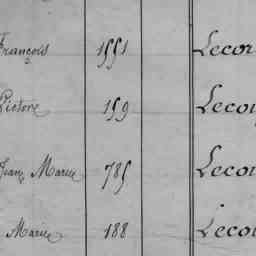 François 1551 Lecor
Victore 159 Lecou
Jean Marie 785 Lecou
Marie 188 Lecou